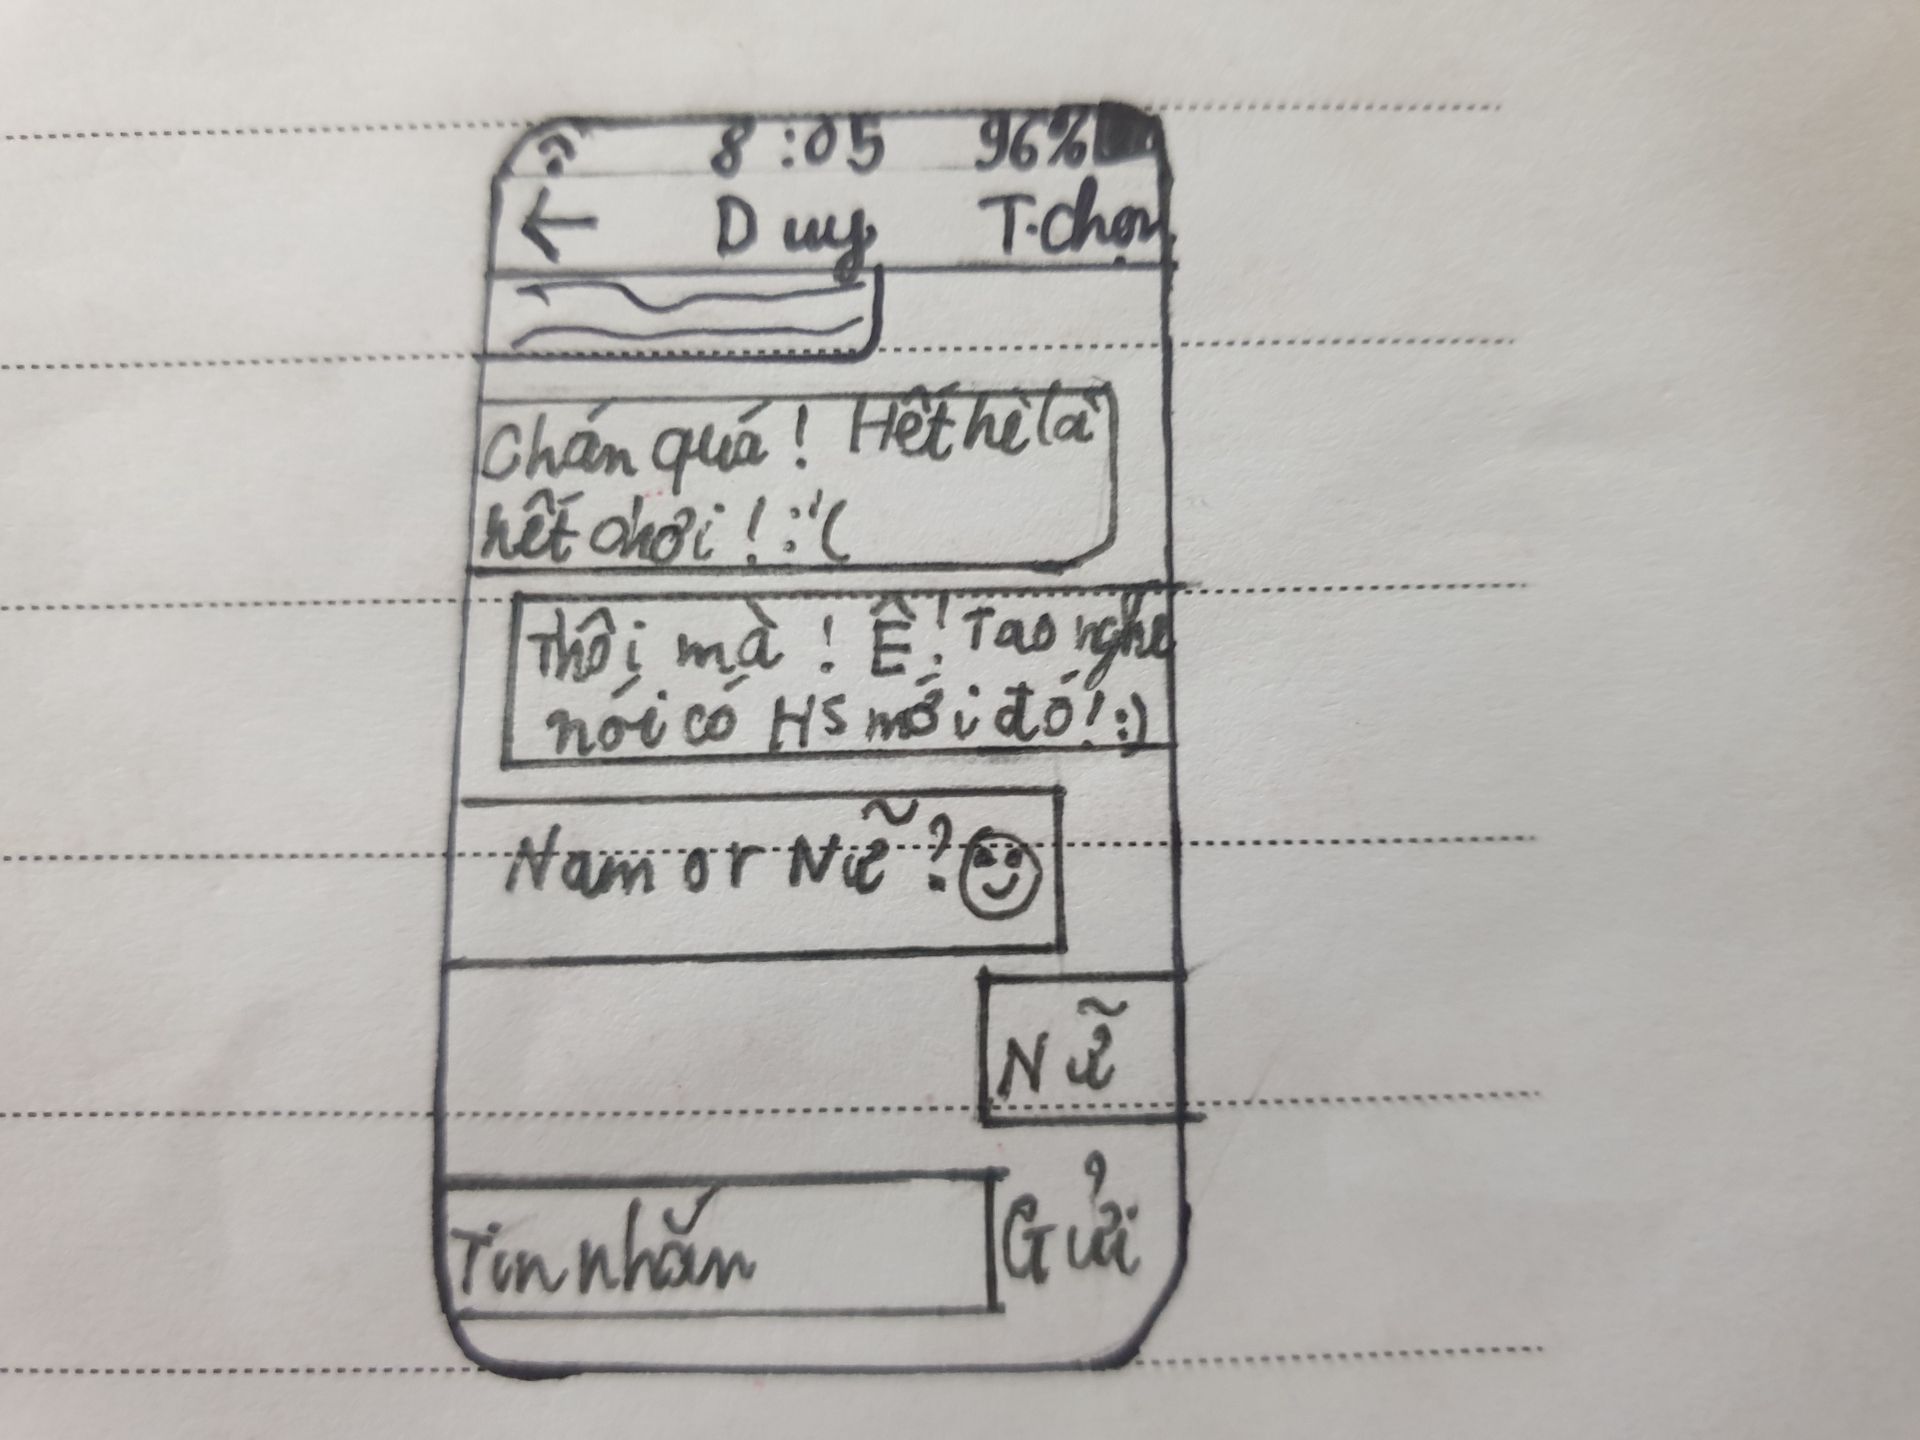 8:05 96%
← Duy T.chọn
Chán quá! Hết hè là
hết chơi! :'(
Thôi mà! Ê! Tao nghe
nói có HS mới đó! :)
Nam or Nữ?
Nữ
Tin nhắn Gửi